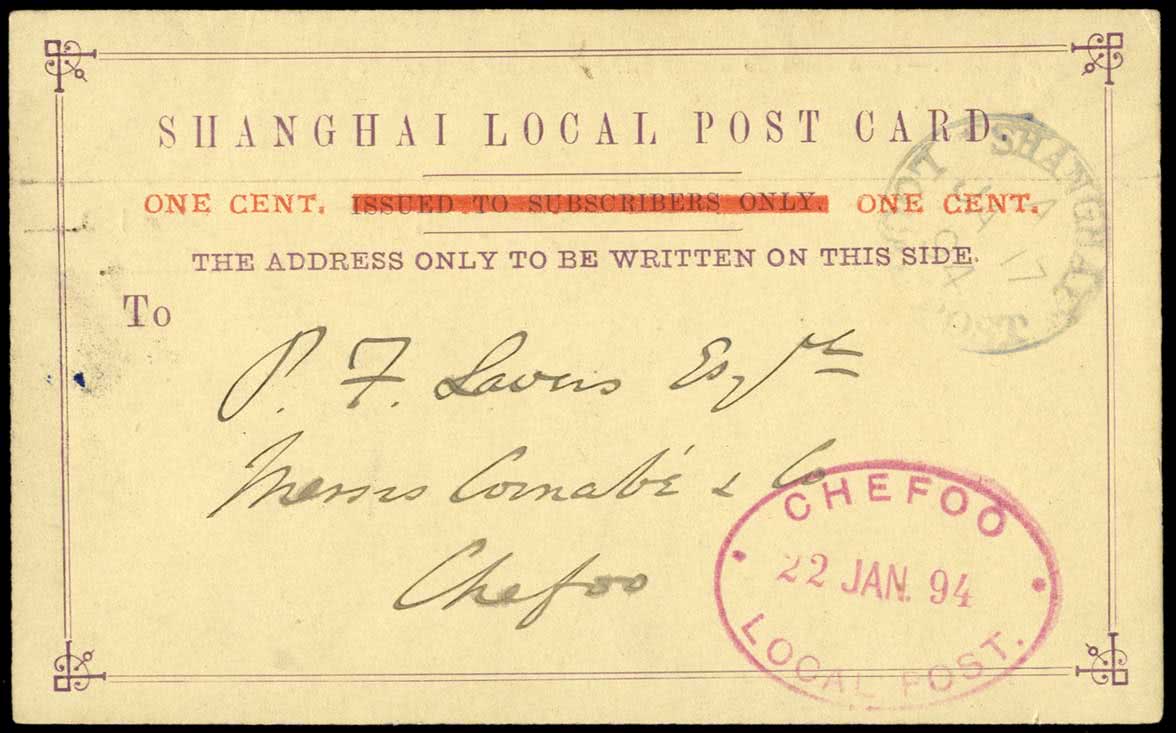 SHANGHAI LOCAL POST CARD.
ONE CENT. ISSUED TO SUBSCRIBERS ONLY. ONE CENT.
THE ADDRESS ONLY TO BE WRITTEN ON THIS SIDE.
To
P. F. Lavers Esqre
Messrs Cornabé & Co
Chefoo
SHANGHAI LOCAL POST
JA 17 94
CHEFOO
22 JAN. 94
LOCAL POST.